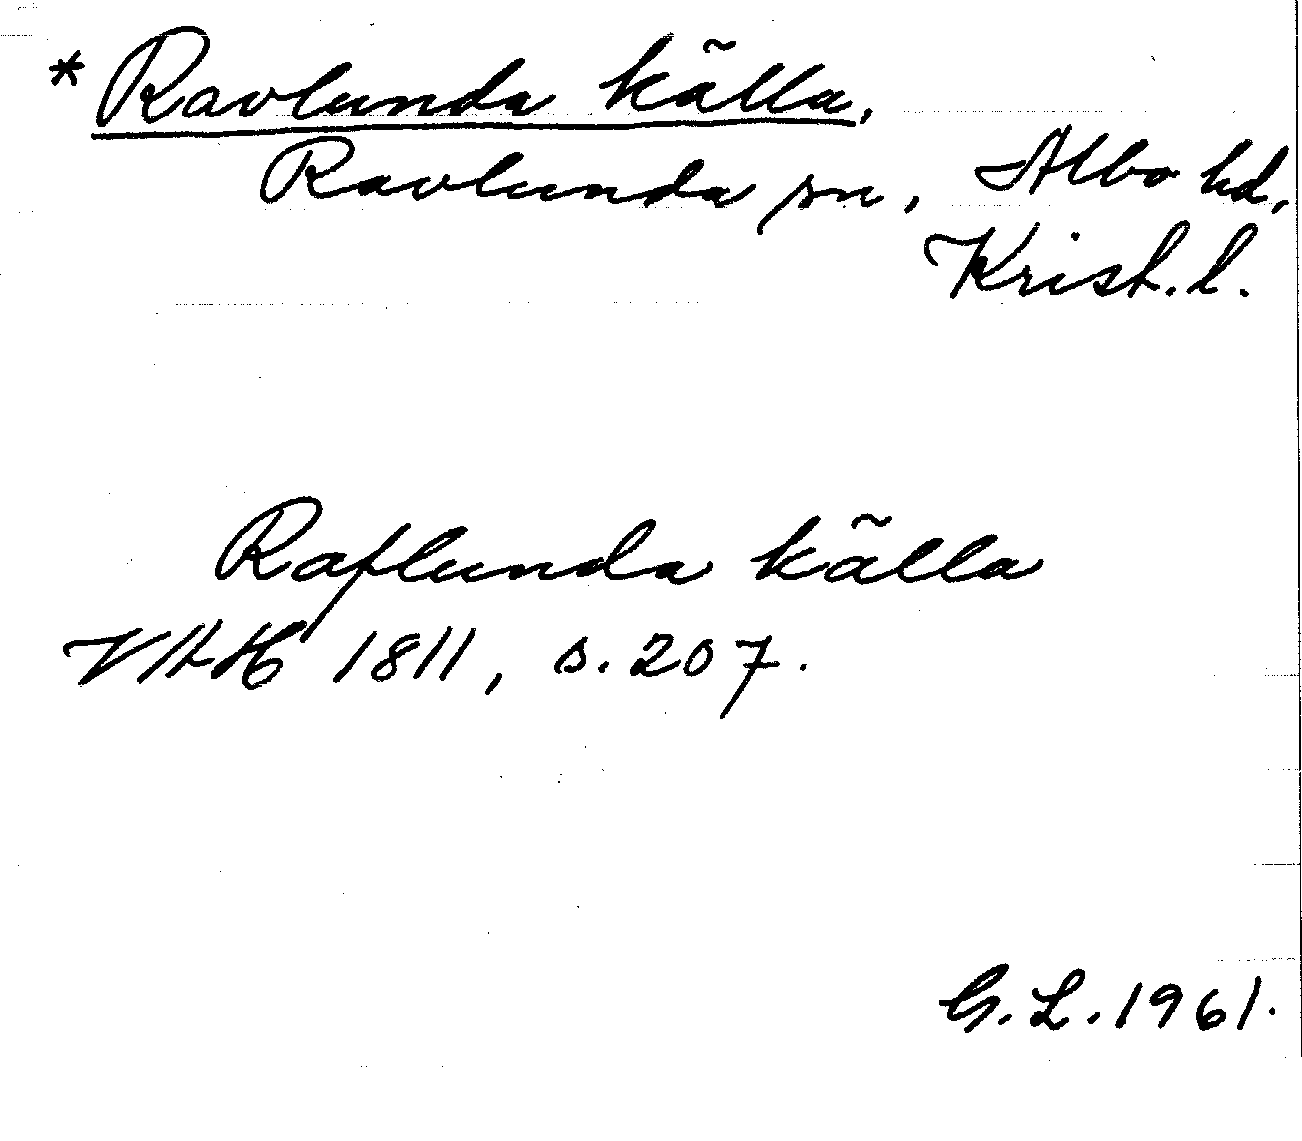 * Ravlunda källa,
Ravlunda sn, Albo hd,
Krist. l.
Raflunda källa
VHAH 1811, s. 207.
G. L. 1961.